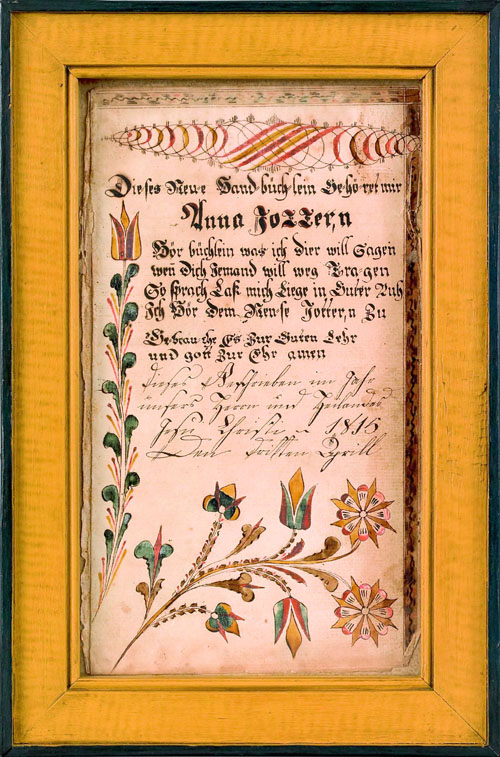 Dieses Neue Hand büch lein Gehö ret mir
Anna Jotter,n
Hör büchlein was ich dier will Sagen
wen̄ Dich Jemand will weg Tra gen
So sprach Laß mich Liege in Guter Ruh
Ich Hör Dem Mense Jotter,n Zu
Gebrau che Es Zur Guten Lehr
und gott Zur Ehr amen
Dieses Geschrieben im Jahr
unsers Herrn und Heilandes
Jesu Christi 1815
Den dritten Aprill